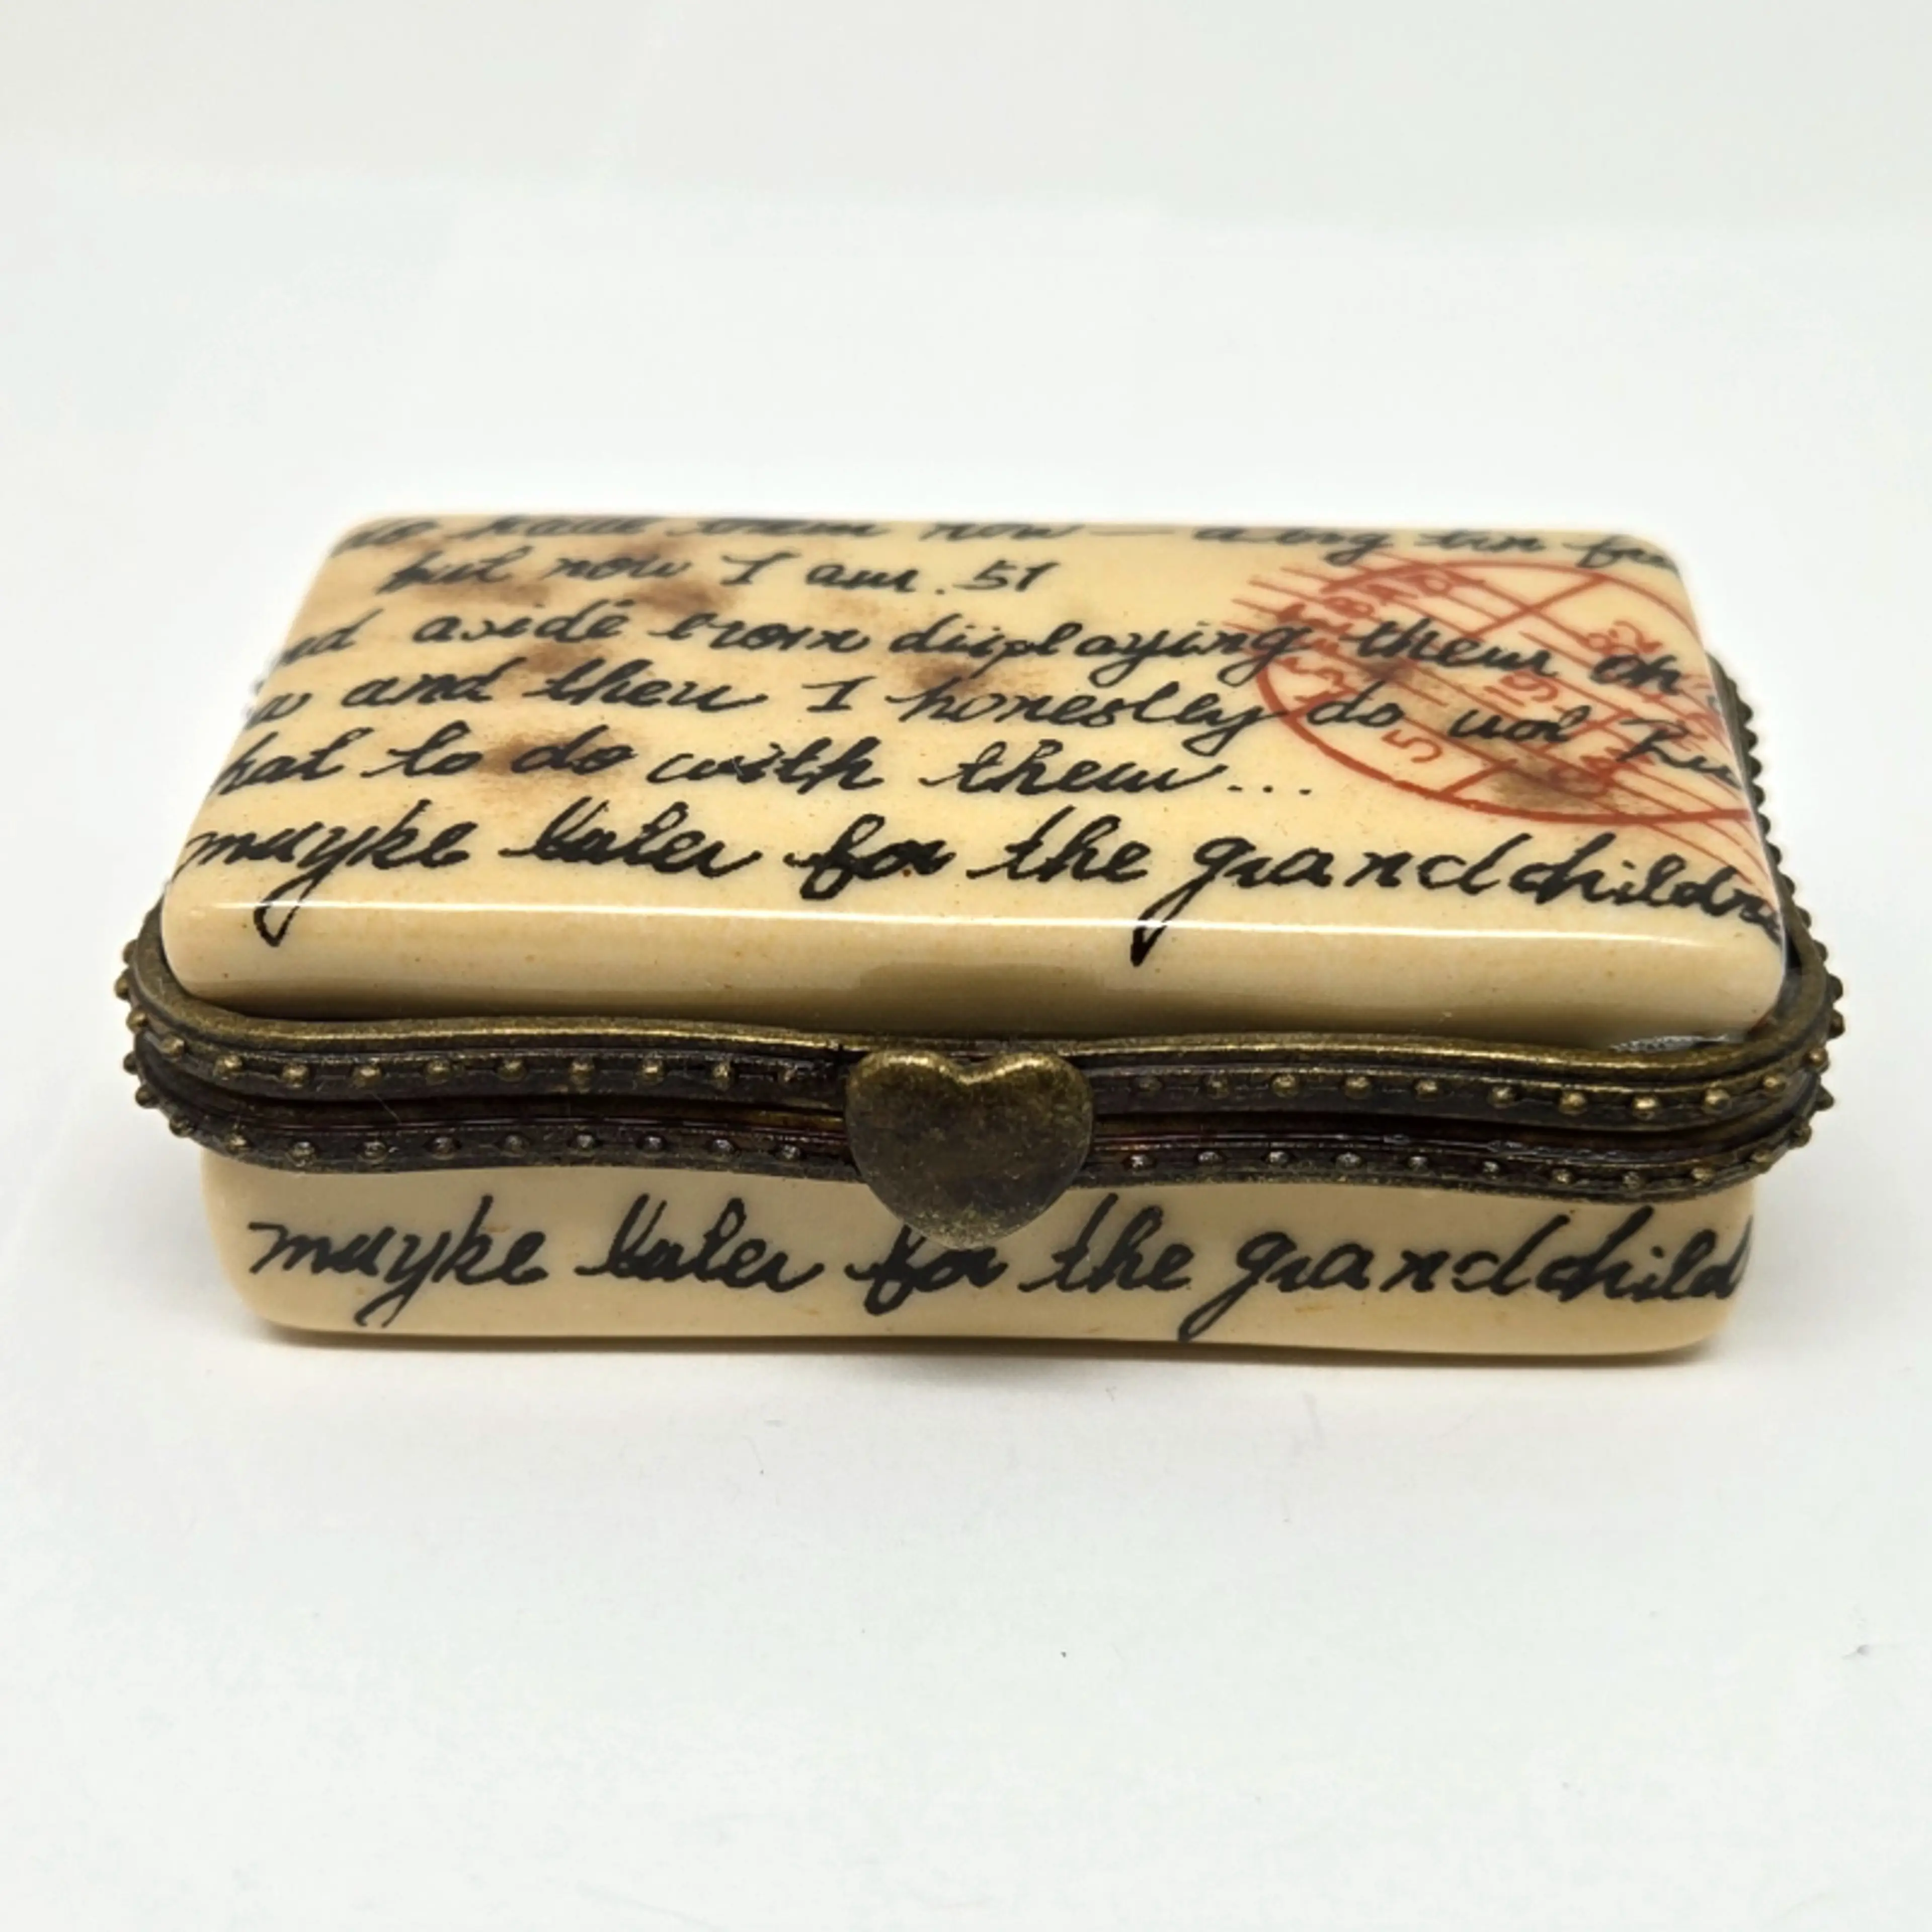 them now — along
but now I am. 51
nd aside from displaying them on
w and then I honestley do not kn
hat to do with them...
maybe later for the grandchildre
maybe later for the grandchild